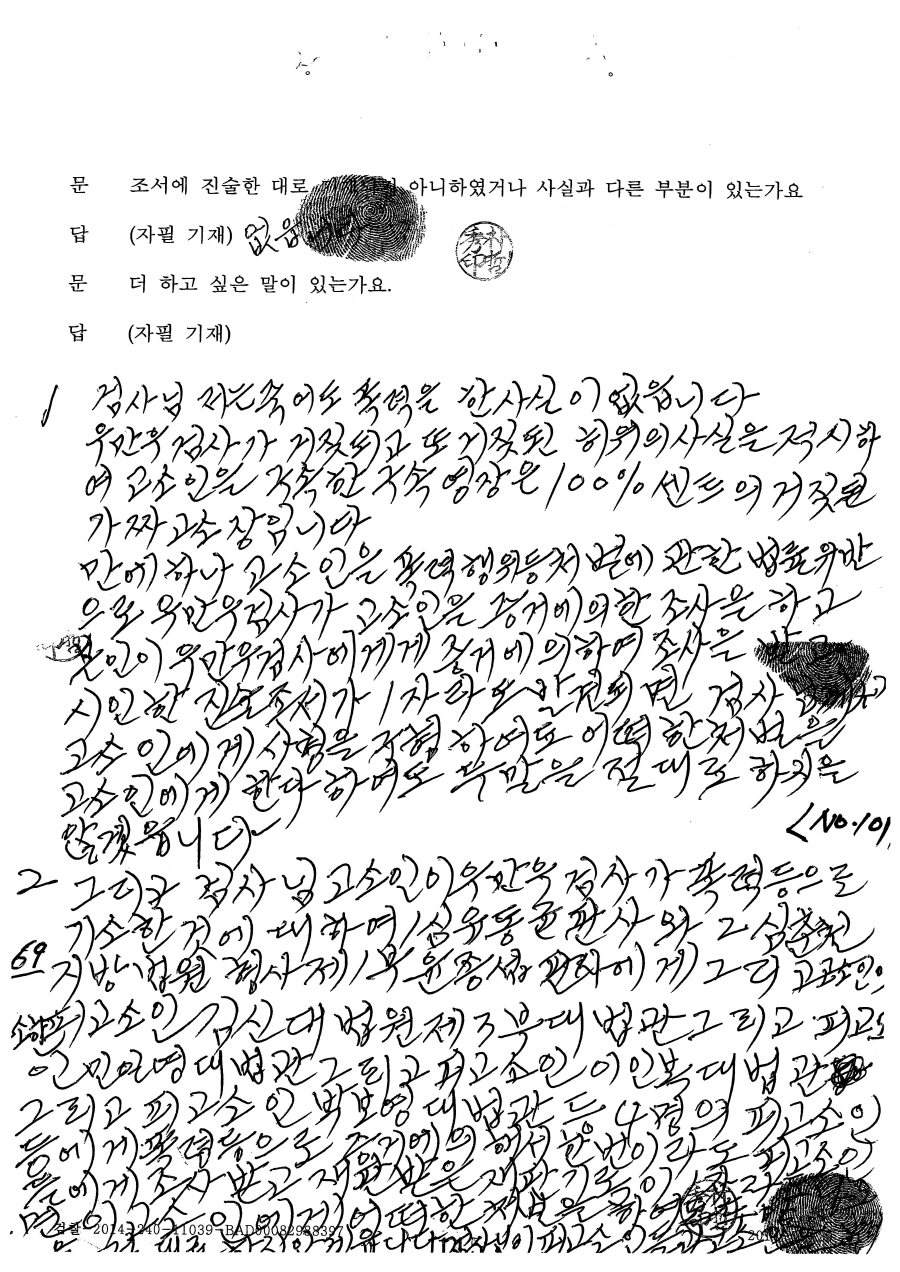 문 조서에 진술한 대로 아니하였거나 사실과 다른 부분이 있는가요
답 (자필 기재) 없읍니다
문 더 하고 싶은 말이 있는가요.
답 (자필 기재)
1 검사님 저는 죽어도 폭력을 한사실이 없읍니다
우만우검사가 거짓되고 또 거짓된 허위의사실을 적시하
여 고소인을 구속한 구속영장은 100% 센트의 거짓된
가짜고소장입니다
만에하나 고소인을 폭력행위등처벌에 관한 법률위반
으로 우만우검사가 고소인을 증거에의한 조사을 하고
본인이 우만우검사에게게 증거에의하여 조사을 받고
시인한 진술조서가 1자라도 발견되면 검사
고소인에게 사형을 구형하여도 어떠한처벌을
고소인에게 한다하여도 두말을 절대로 하지을
않겠읍니다
<NO.101
2 그리고 검사님 고소인이우만우검사가 폭력등으로
기소한 것에 대하여 1심 유동균판사와 2심 춘천
69 지방법원 형사제1부 윤종섭 판사에게 그리고
피고소인 김신 대법원제3부대법관 그리고 피고소
인 민일영대법관 그리고 피고소인 이인복 대법관
그리고 피고소인 박보영 대법관 등 4명의 피고소인
등에게 폭력등으로 증거에의해서 한번이라도 피고소인
들에게 조사 받고 재판받은 재판기록이
면 고소인에게 어떠한 처벌을
검찰 2014-240-11039-BAD00082988397